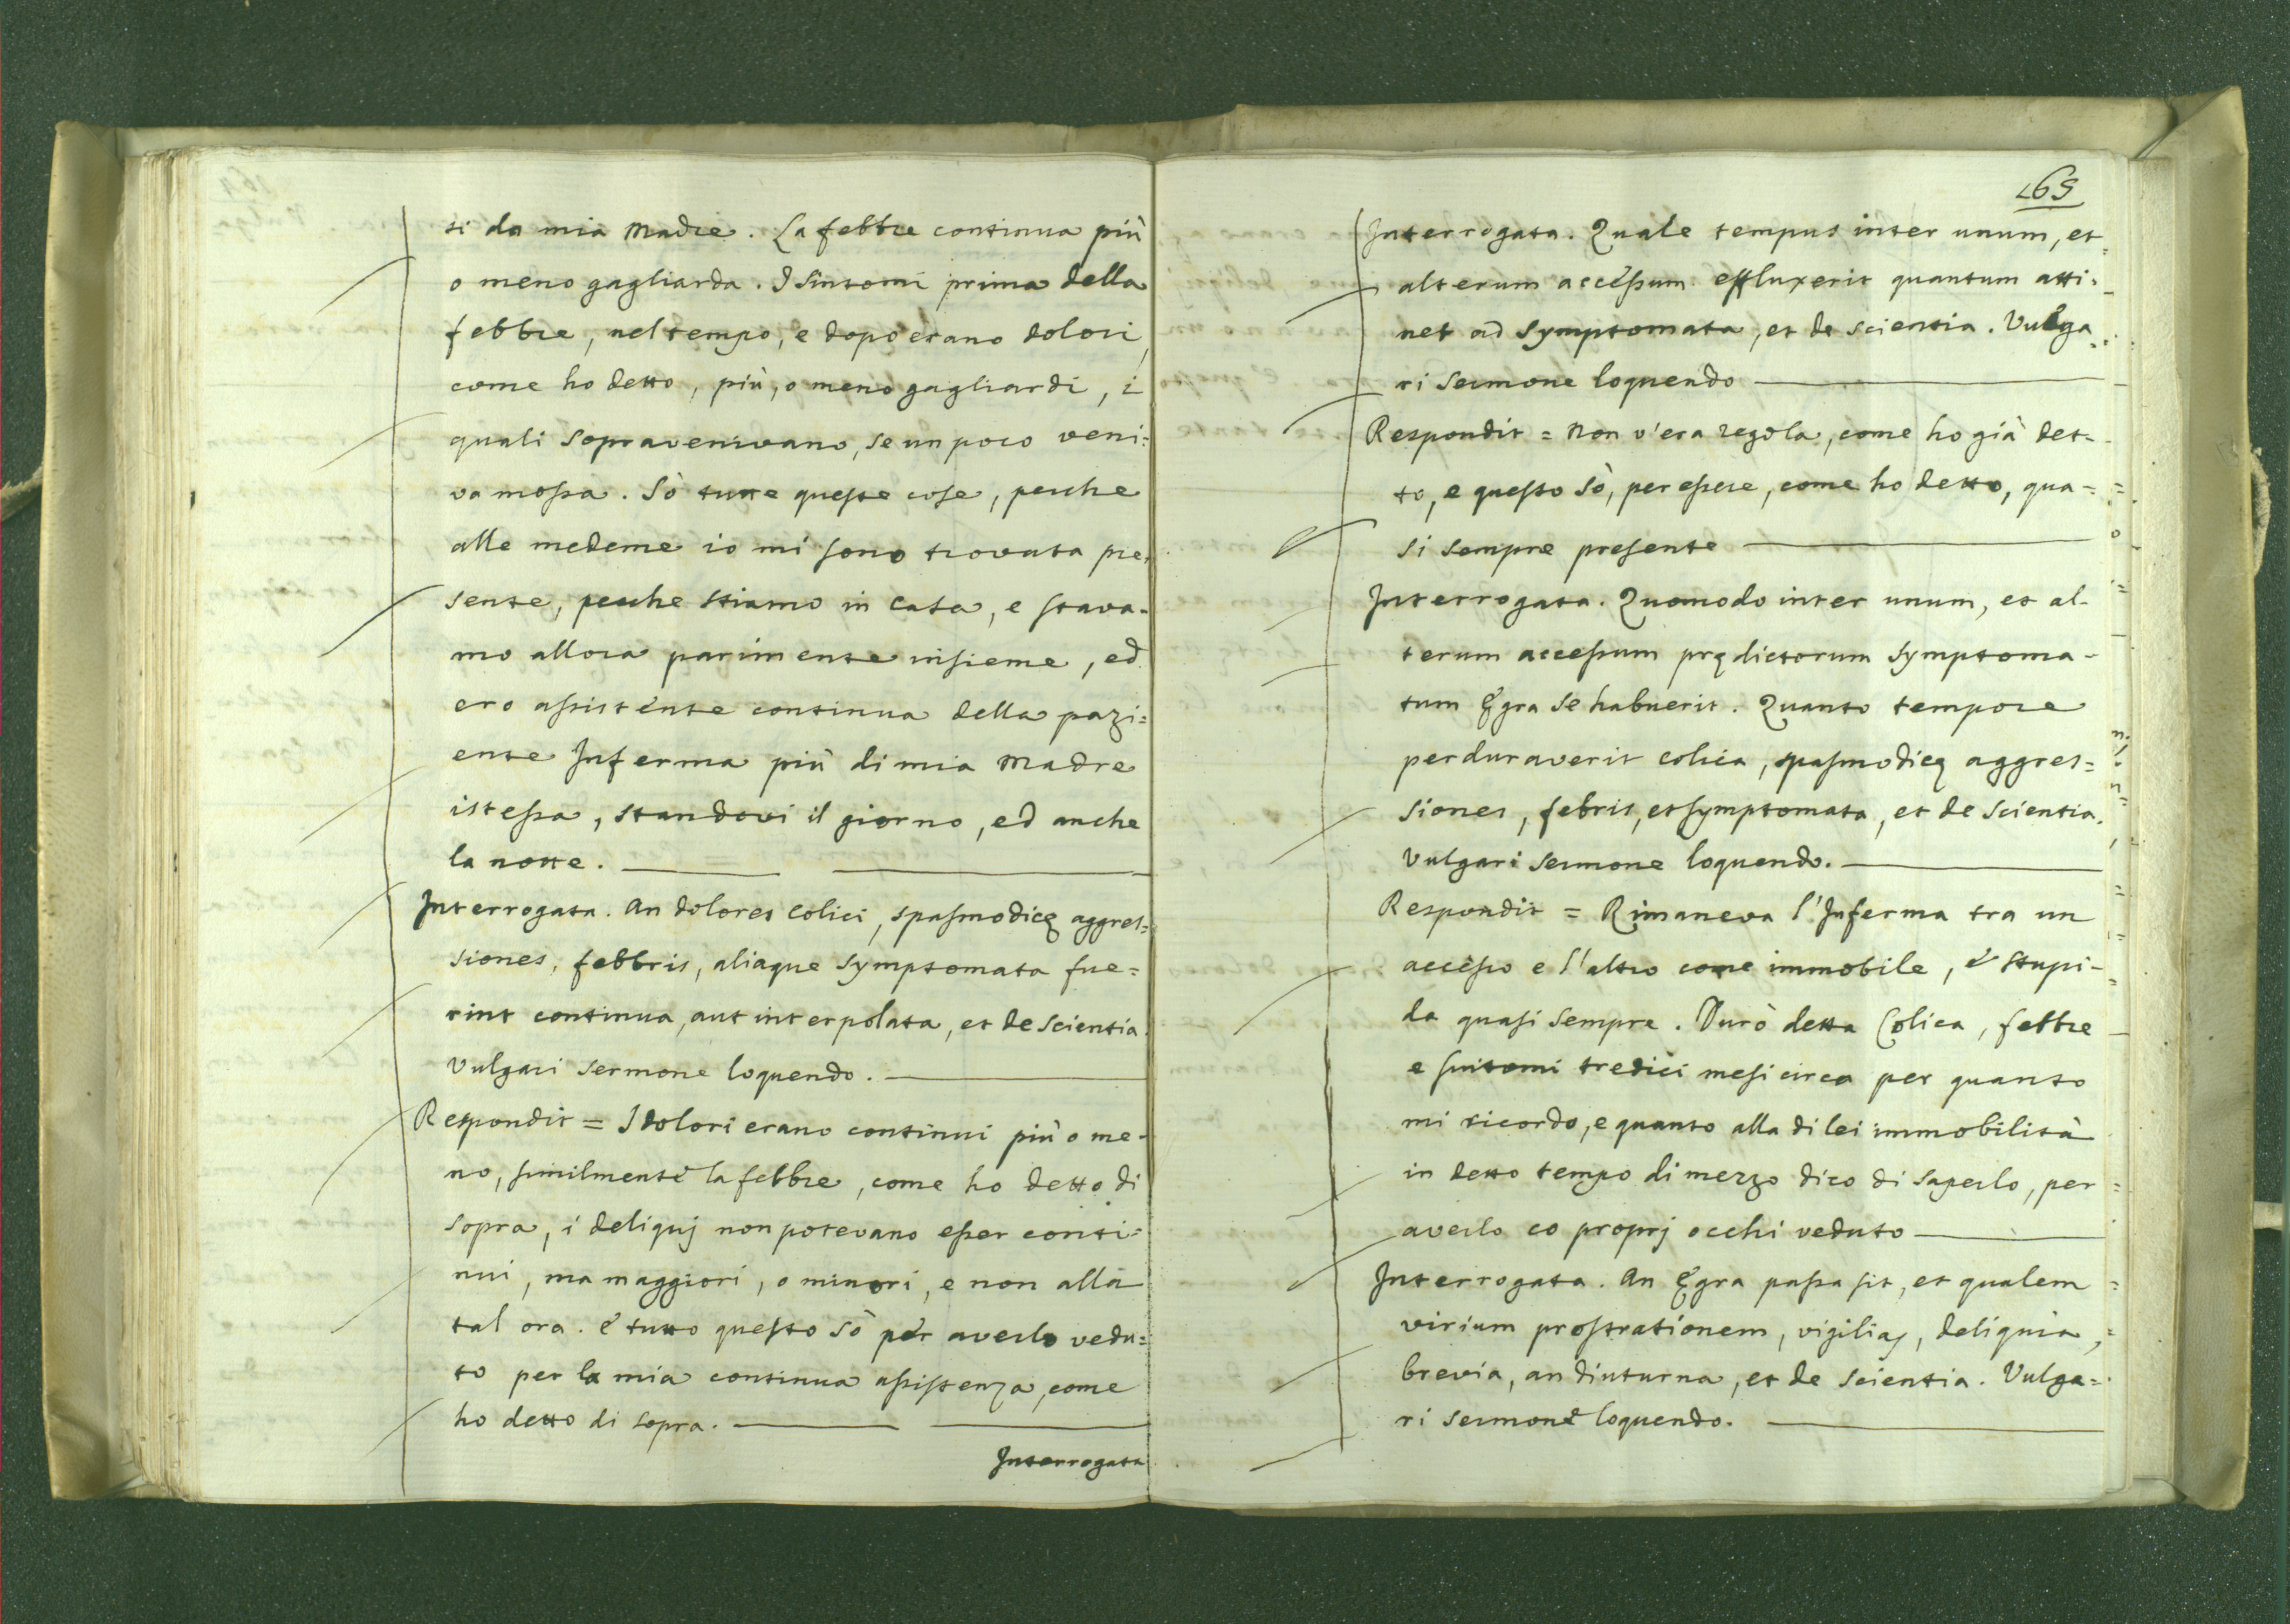 si da mia Madre. La febbre continua più
o meno gagliarda. I sintomi prima della
febbre, nel tempo, e dopo erano dolori,
come ho detto, più, o meno gagliardi, i
quali sopravenivano, se un poco veni=
va mossa. Sò tutte queste cose, perche
alle medeme io mi sono trovata pre=
sente, perche stiamo in Casa, e stava=
mo allora parimente insieme, ed
ero assistente continua della pazi=
ente Inferma più di mia Madre
istessa, standovi il giorno, ed anche
la notte.
Interrogata. An dolores colici, spasmodicę aggres=
siones, febbris, aliaque symptomata fue=
rint continua, aut interpolata, et de scientia.
Vulgari sermone loquendo.
Respondit = I dolori erano continui più o me=
no, similmente la febbre, come ho detto di
sopra, i deliquj non potevano esser conti=
nui, ma maggiori, o minori, e non alla
tal ora. e tutto questo sò per averlo vedu=
to per la mia continua assistenza, come
ho detto di sopra.
Interrogata
165
Interrogata. Quale tempus inter unum, et
alterum accessum effluxerit quantum atti=
net ad symptomata, et de scientia. Vulga=
ri sermone loquendo
Respondit = Non v'era regola, come ho già det=
to, e questo sò, per essere, come ho detto, qua=
si sempre presente
Interrogata. Quomodo inter unum, et al=
terum accessum prędictorum symptoma=
tum Ęgra se habuerit. Quanto tempore
perduraverit colica, spasmodicę aggres=
siones, febris, et symptomata, et de scientia.
Vulgari sermone loquendo.
Respondit = Rimaneva l'Inferma tra un
accesso e l'altro come immobile, e stupi=
da quasi sempre. Durò detta Colica, febbre
e sintomi tredici mesi circa per quanto
mi ricordo, e quanto alla di lei immobilità
in detto tempo di mezzo dico di saperlo, per
averlo co proprj occhi veduto
Interrogata. An Ęgra passa sit, et qualem
virium prostrationem, vigilias, deliquia,
brevia, an diuturna, et de scientia. Vulga=
ri sermone loquendo.